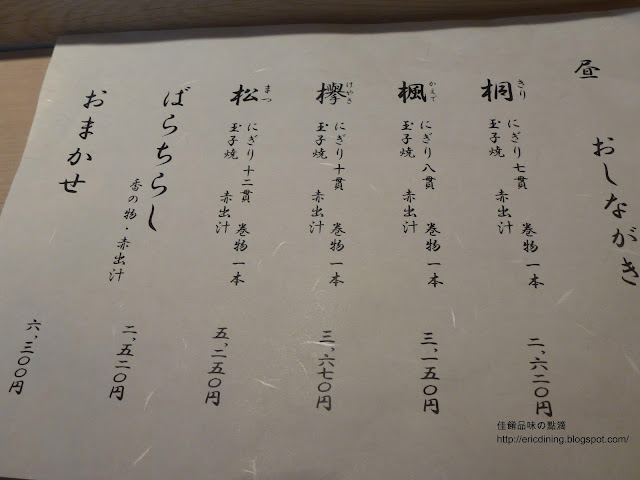 昼
おしながき
桐
きり
にぎり七貫 巻物一本
玉子焼 赤出汁
二、六二〇円
楓
かえで
にぎり八貫 巻物一本
玉子焼 赤出汁
三、一五〇円
欅
けやき
にぎり十貫 巻物一本
玉子焼 赤出汁
三、六七〇円
松
まつ
にぎり十二貫 巻物一本
玉子焼 赤出汁
五、二五〇円
ばらちらし
香の物・赤出汁
二、五二〇円
おまかせ
六、三〇〇円
佳餚品味の點滴
http://ericdining.blogspot.com/